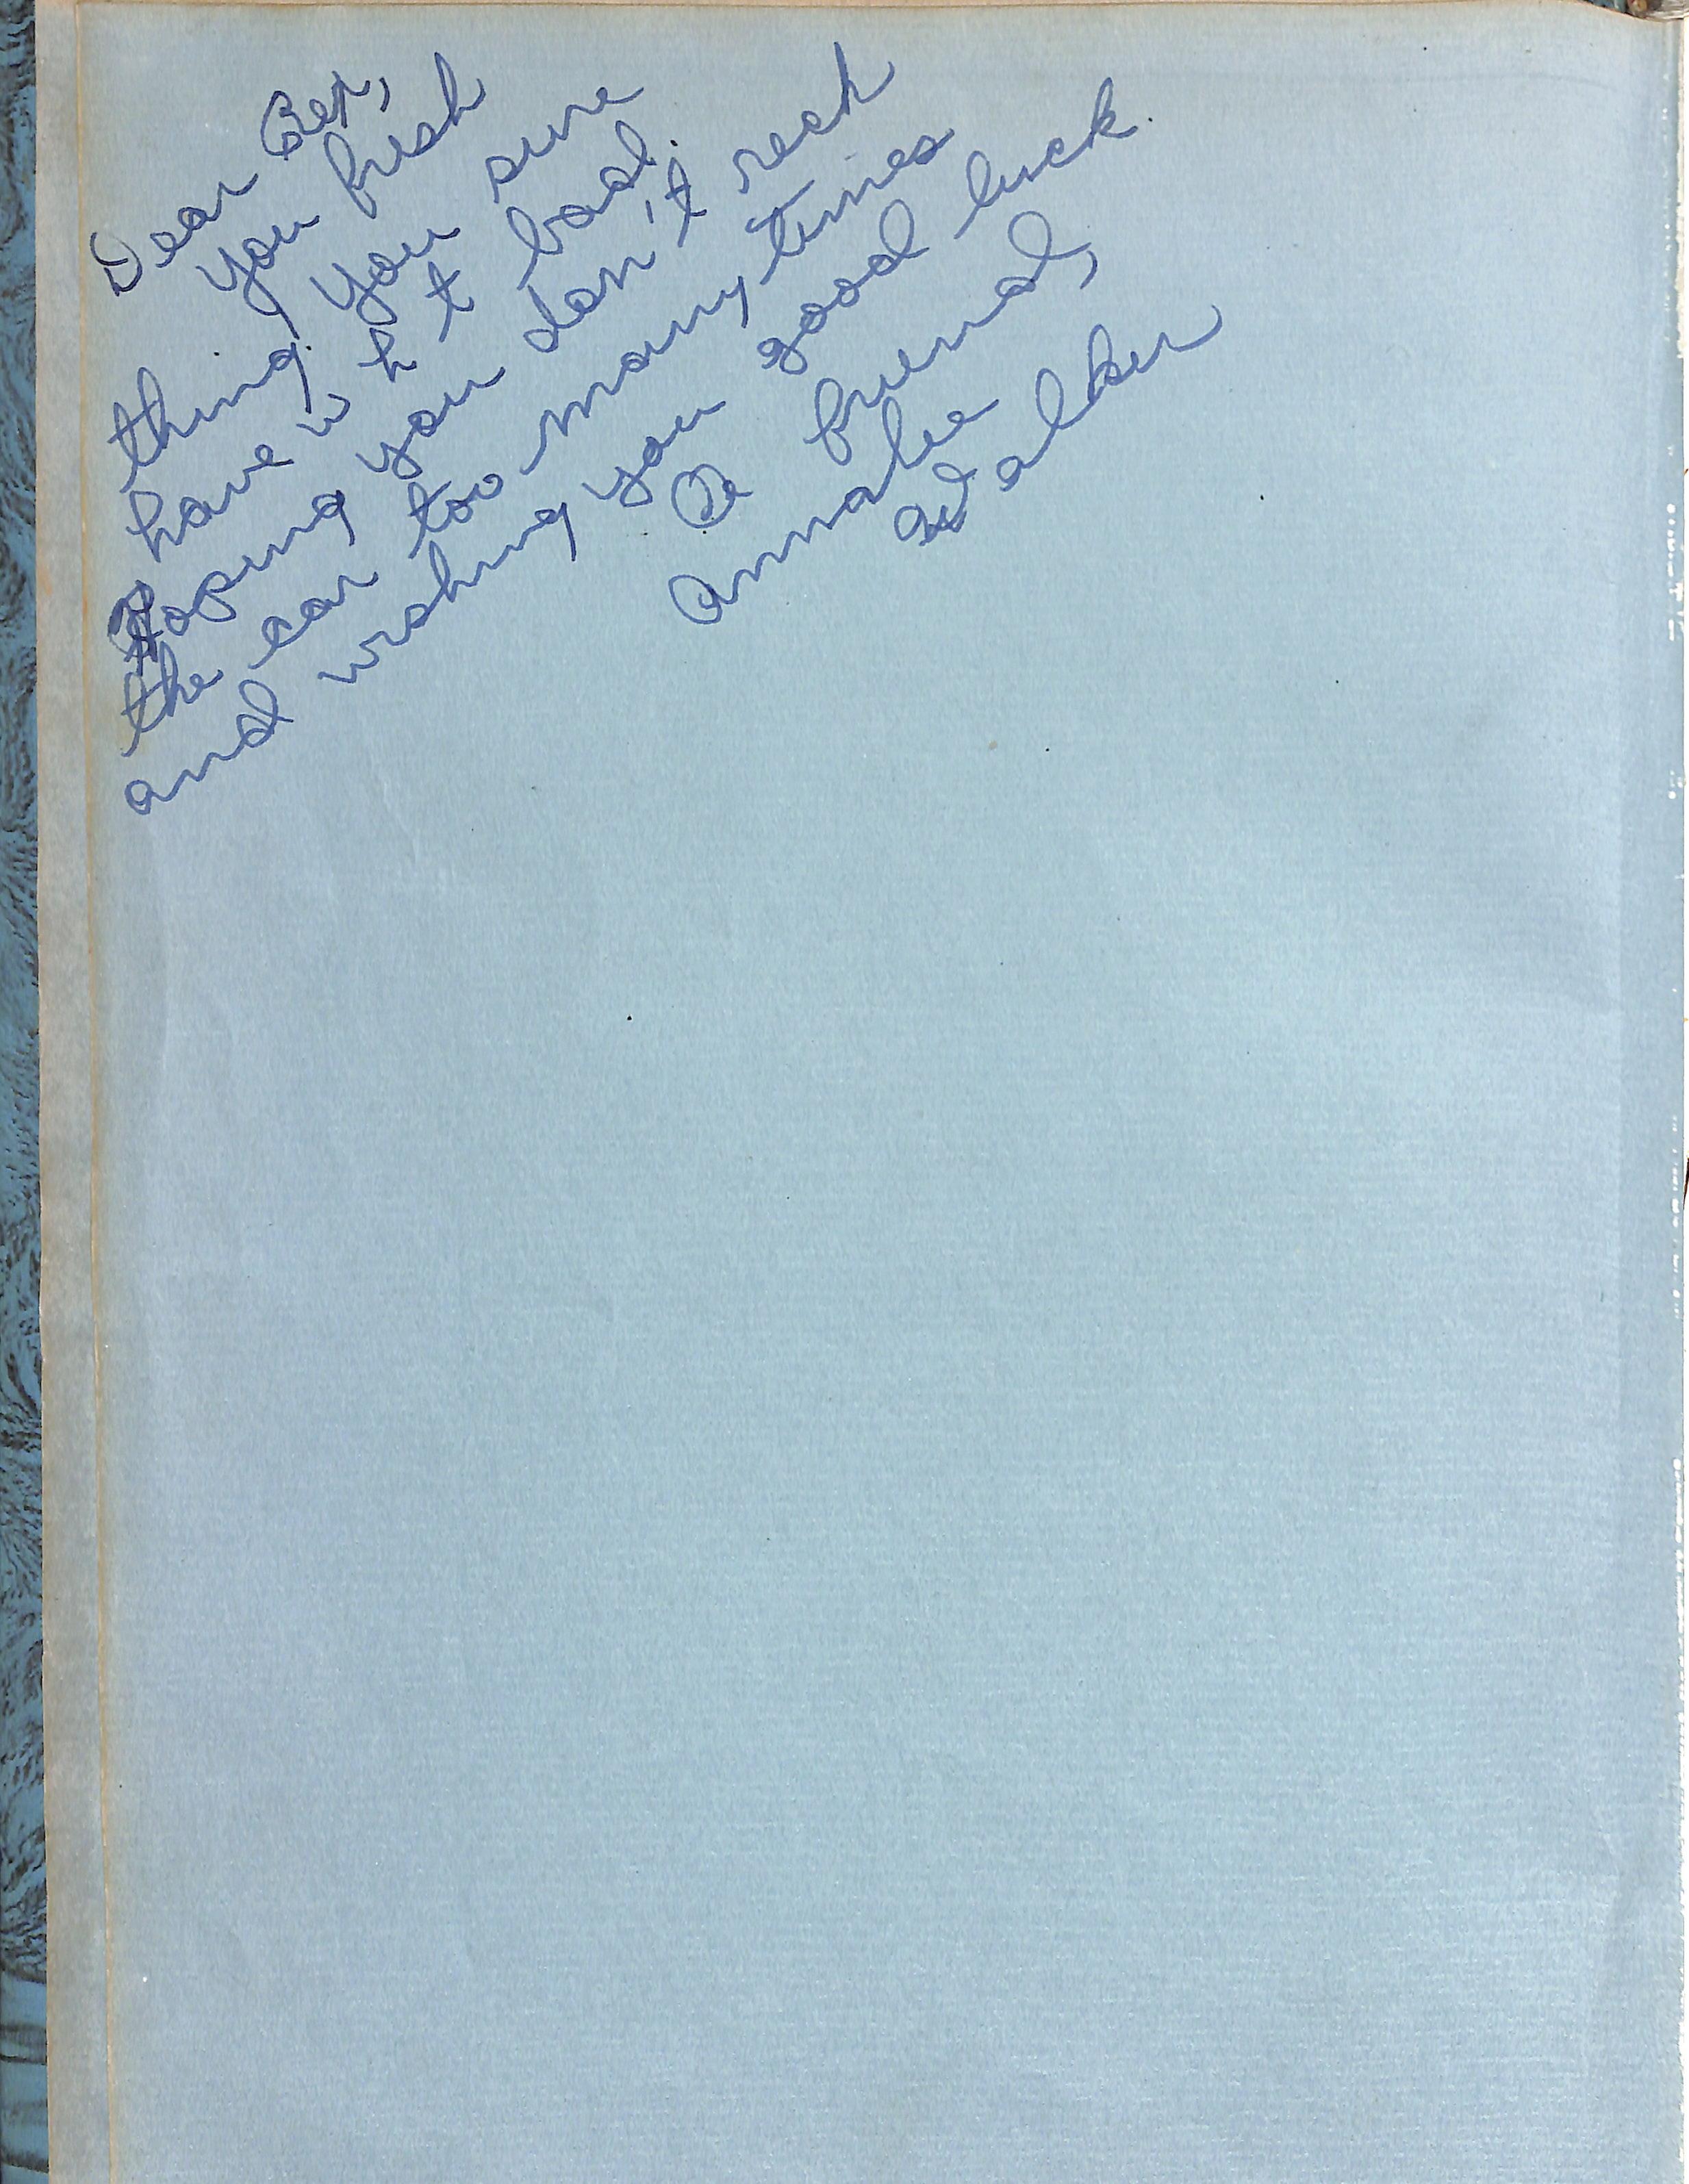 Dear
You fresh
thing. You sure
have bad.
Hoping you don't reck
the car too many times
and wishing you good luck.
A friend,
Annalee
Walker